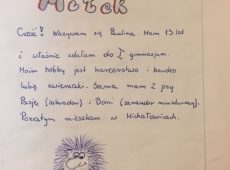 Cześć! Nazywam się Paulina. Mam 13 lat
i właśnie zdałam do I gimnazjum.
Moim hobby jest harcerstwo i bardzo
lubię zwierzaki. Sama mam 2 psy
Pasję (labrador) i Boni (sznaucer miniaturowy).
Pozatym mieszkam w Michałowicach.